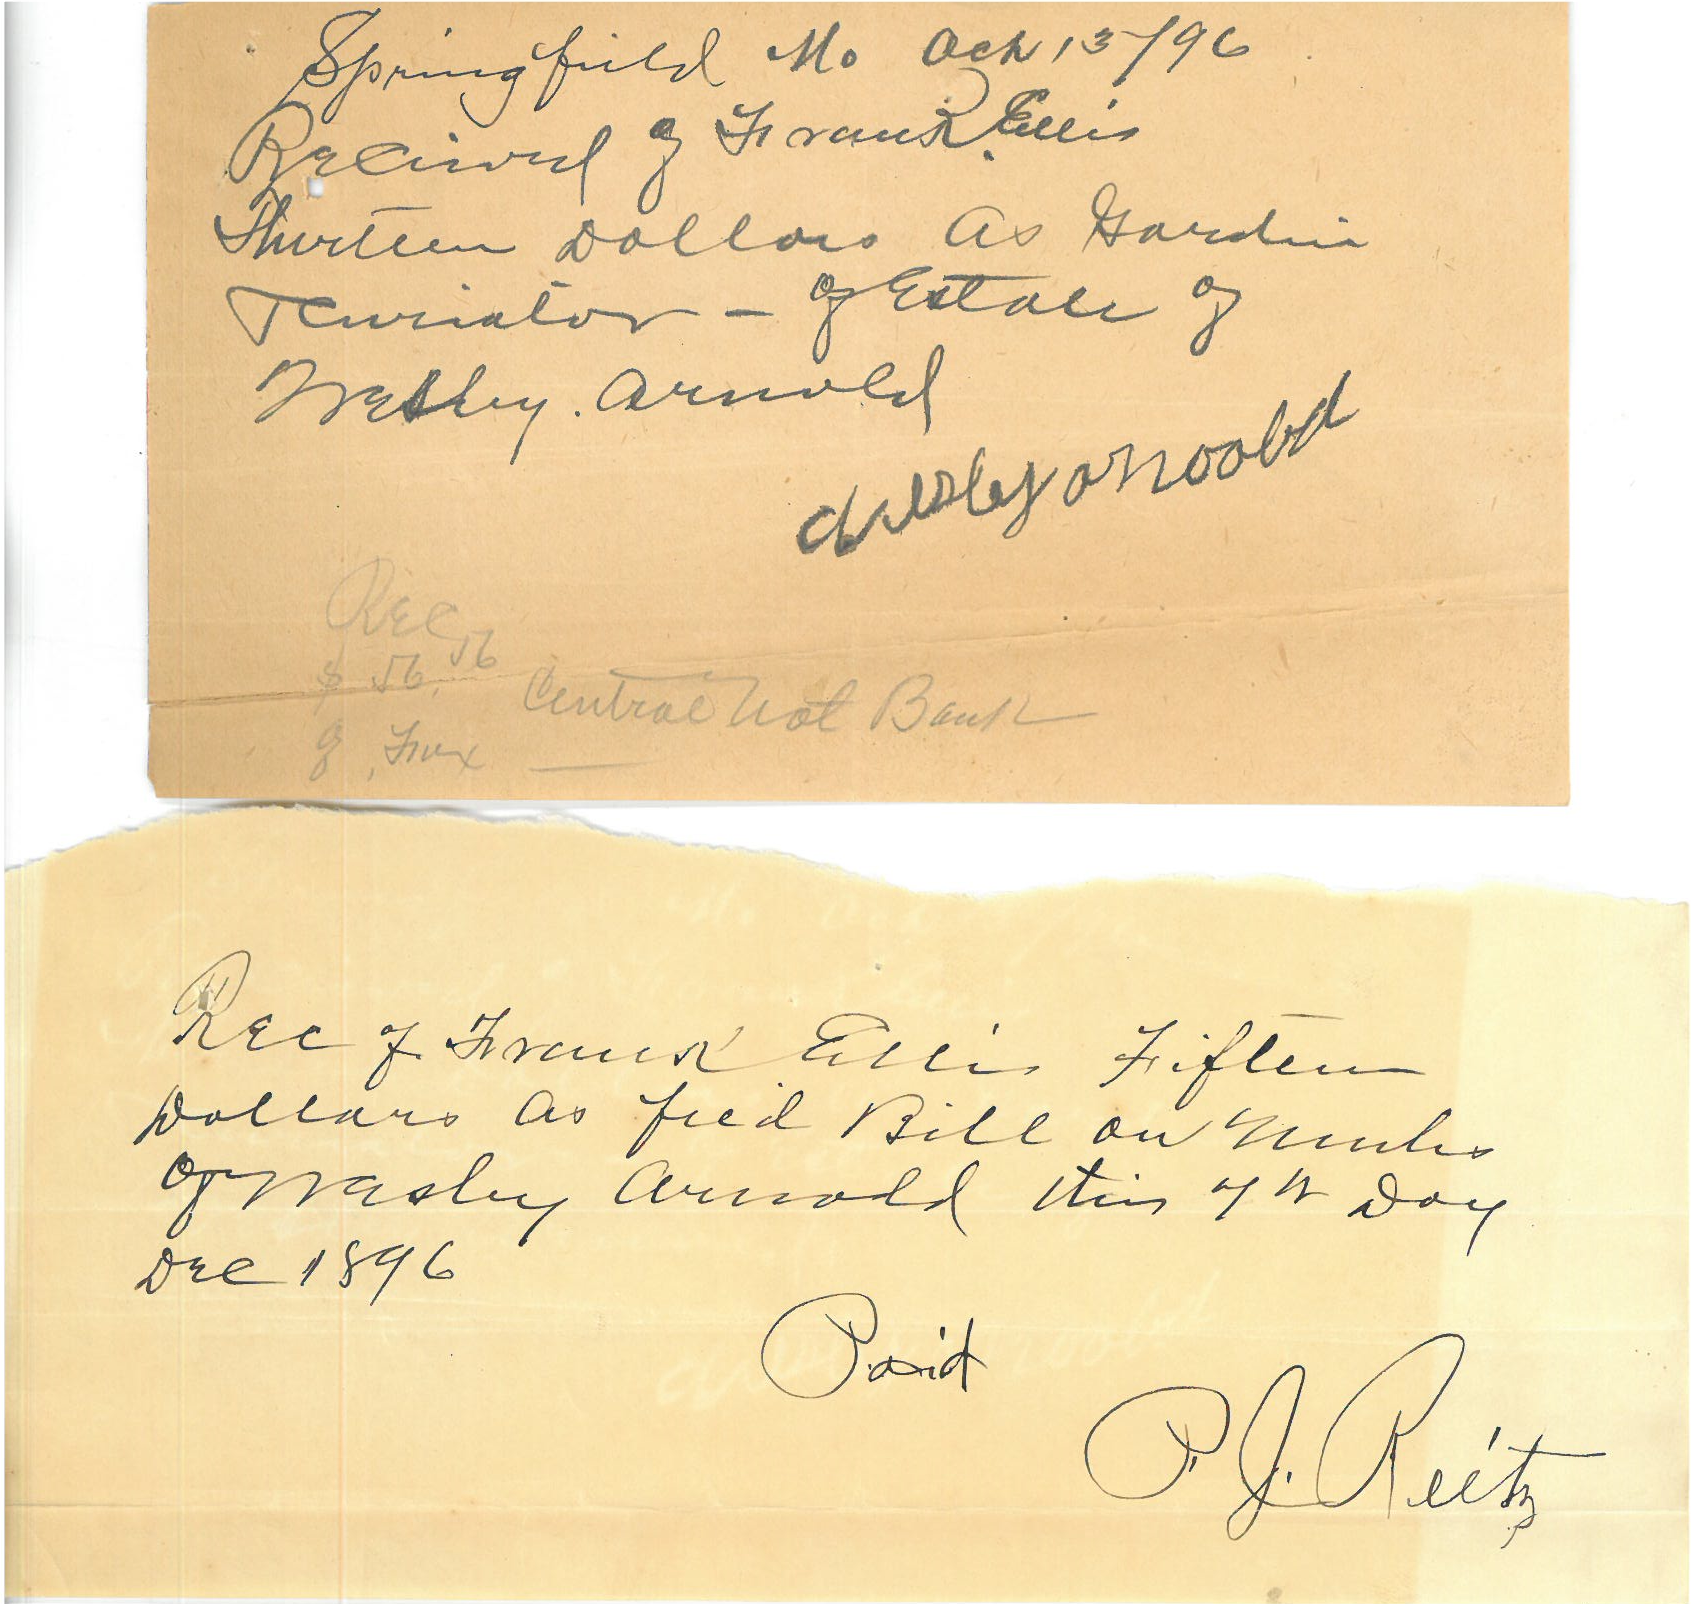 Springfield Mo Oct 13/96
Recived of Frank Ellis
Thirteen Dollars as Gardin
- of Estate of
Wesley. Arnold
Wesley
Rec
$ 56.56
Central Nat Bank
of
Rec of Frank Ellis Fifteen
Dollars as feed Bill on Mules
of Wesley Arnold this 7th Day
Dec 1896
Paid
P. J. Reitz